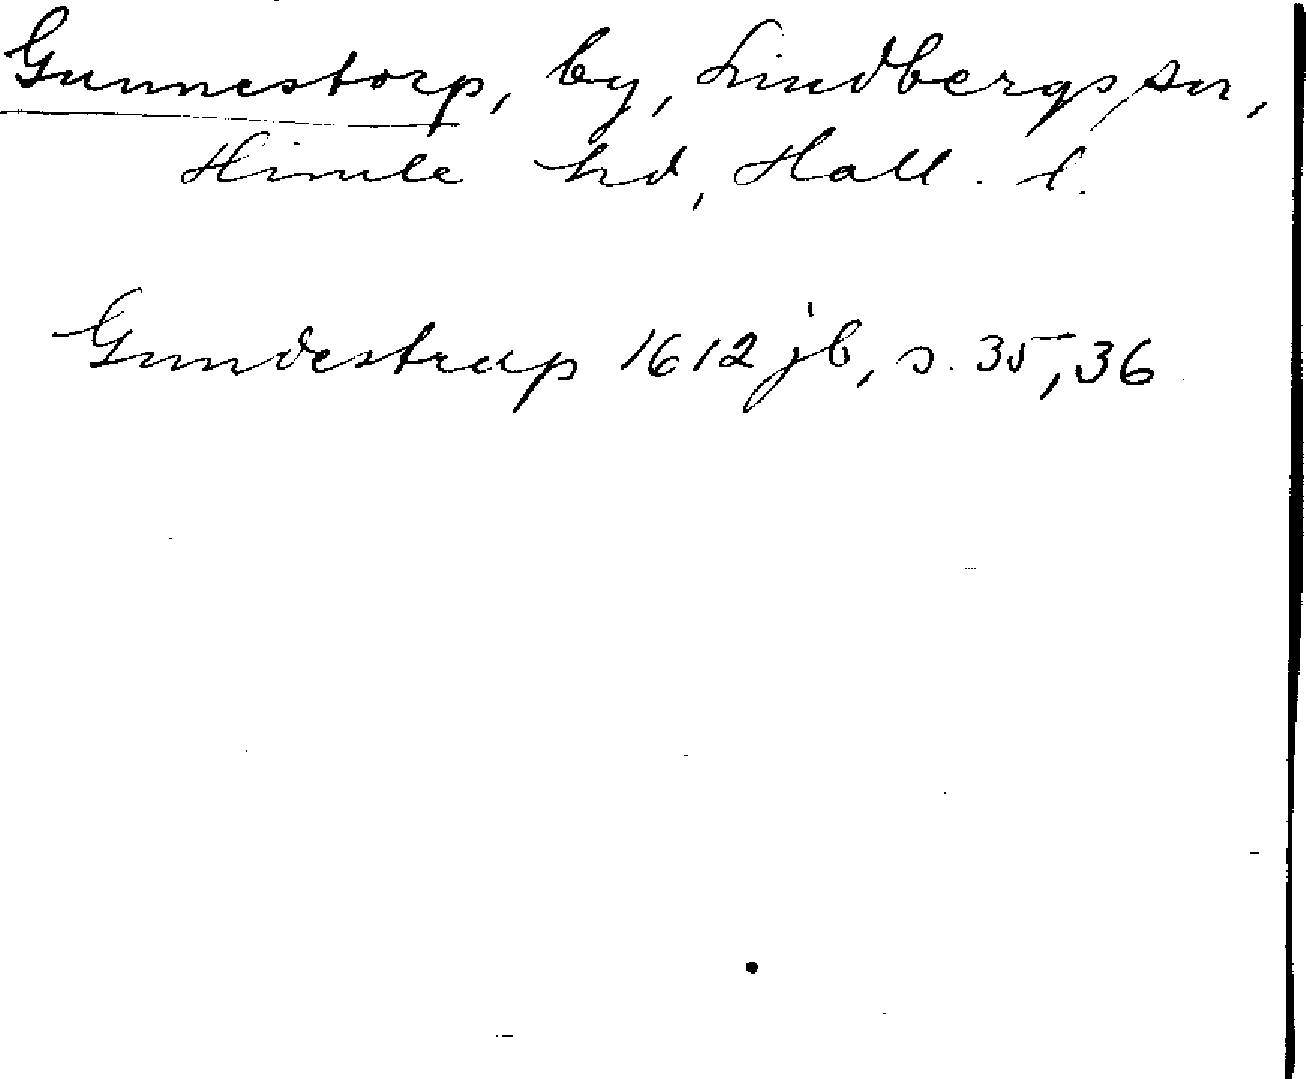 Gunnestorp, by, Lindbergs sn,
Himle hd, Hall. l.
Gundestrup 1612 jb, s. 35, 36